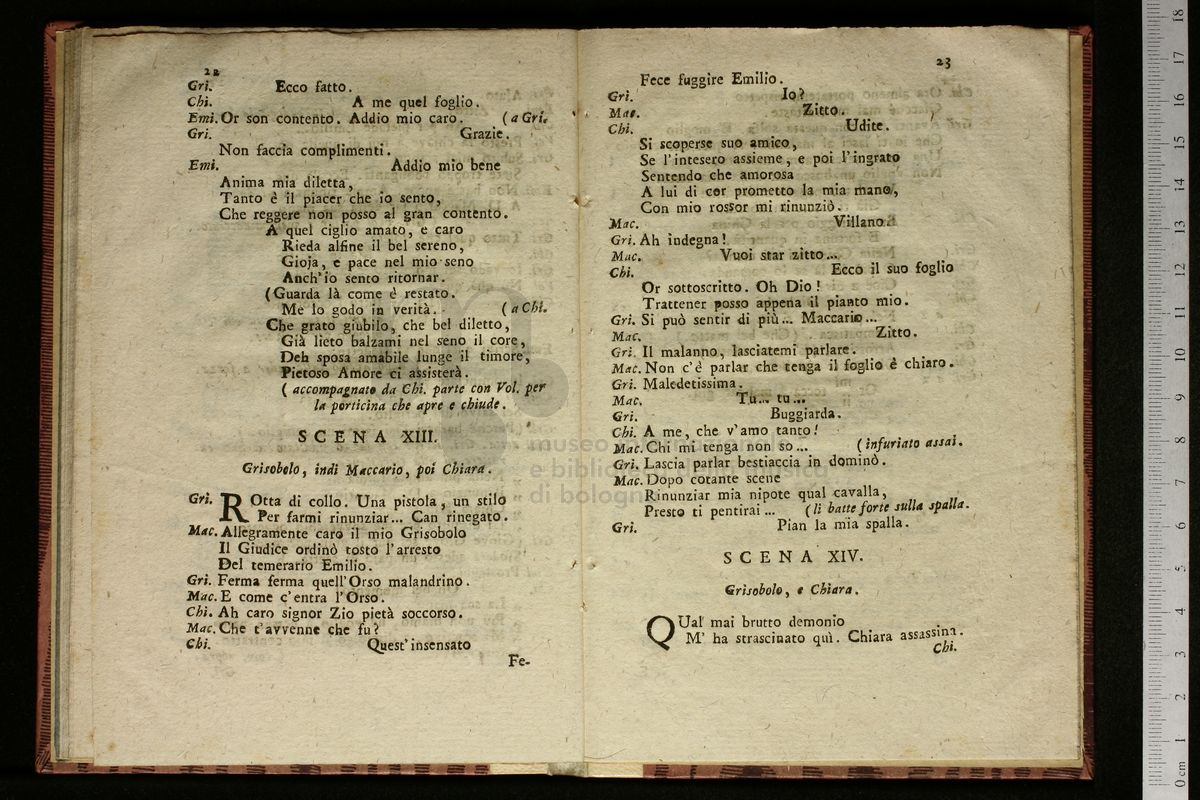 22
Gri. Ecco fatto.
Chi. A me quel foglio.
Emi. Or son contento. Addio mio caro. (a Gri.
Gri. Grazie.
Non faccia complimenti.
Emi. Addio mio bene
Anima mia diletta,
Tanto è il piacer che io sento,
Che reggere non posso al gran contento.
A quel ciglio amato, e caro
Rieda alfine il bel sereno,
Gioja, e pace nel mio seno
Anch'io sento ritornar.
(Guarda là come è restato.
Me lo godo in verità. (a Chi.
Che grato giubilo, che bel diletto,
Già lieto balzami nel seno il core,
Deh sposa amabile lunge il timore,
Pietoso Amore ci assisterà.
(accompagnato da Chi. parte con Vol. per
la porticina che apre e chiude.
SCENA XIII.
Grisobolo, indi Maccario, poi Chiara.
Gri. ROtta di collo. Una pistola, un stilo
Per farmi rinunziar... Can rinegato.
Mac. Allegramente caro il mio Grisobolo
Il Giudice ordinò tosto l'arresto
Del temerario Emilio.
Gri. Ferma ferma quell'Orso malandrino.
Mac. E come c'entra l'Orso.
Chi. Ah caro signor Zio pietà soccorso.
Mac. Che t'avvenne che fu?
Chi. Quest'insensato
Fe-
23
Fece fuggire Emilio.
Gri. Io?
Mac. Zitto.
Chi. Udite.
Si scoperse suo amico,
Se l'intesero assieme, e poi l'ingrato
Sentendo che amorosa
A lui di cor prometto la mia mano,
Con mio rossor mi rinunziò.
Mac. Villano.
Gri. Ah indegna!
Mac. Vuoi star zitto...
Chi. Ecco il suo foglio
Or sottoscritto. Oh Dio!
Trattener posso appena il pianto mio.
Gri. Si può sentir di più... Maccario...
Mac. Zitto.
Gri. Il malanno, lasciatemi parlare.
Mac. Non c'è parlar che tenga il foglio è chiaro.
Gri. Maledetissima.
Mac. Tu... tu...
Gri. Buggiarda.
Chi. A me, che v'amo tanto!
Mac. Chi mi tenga non so... (infuriato assai.
Gri. Lascia parlar bestiaccia in dominò.
Mac. Dopo cotante scene
Rinunziar mia nipote qual cavalla,
Presto ti pentirai... (li batte forte sulla spalla.
Gri. Pian la mia spalla.
SCENA XIV.
Grisobolo, e Chiara.
QUal mai brutto demonio
M' ha strascinato quì. Chiara assassina.
Chi.
museo
e biblio
di bologna
0 cm 1 2 3 4 5 6 7 8 9 10 11 12 13 14 15 16 17 18